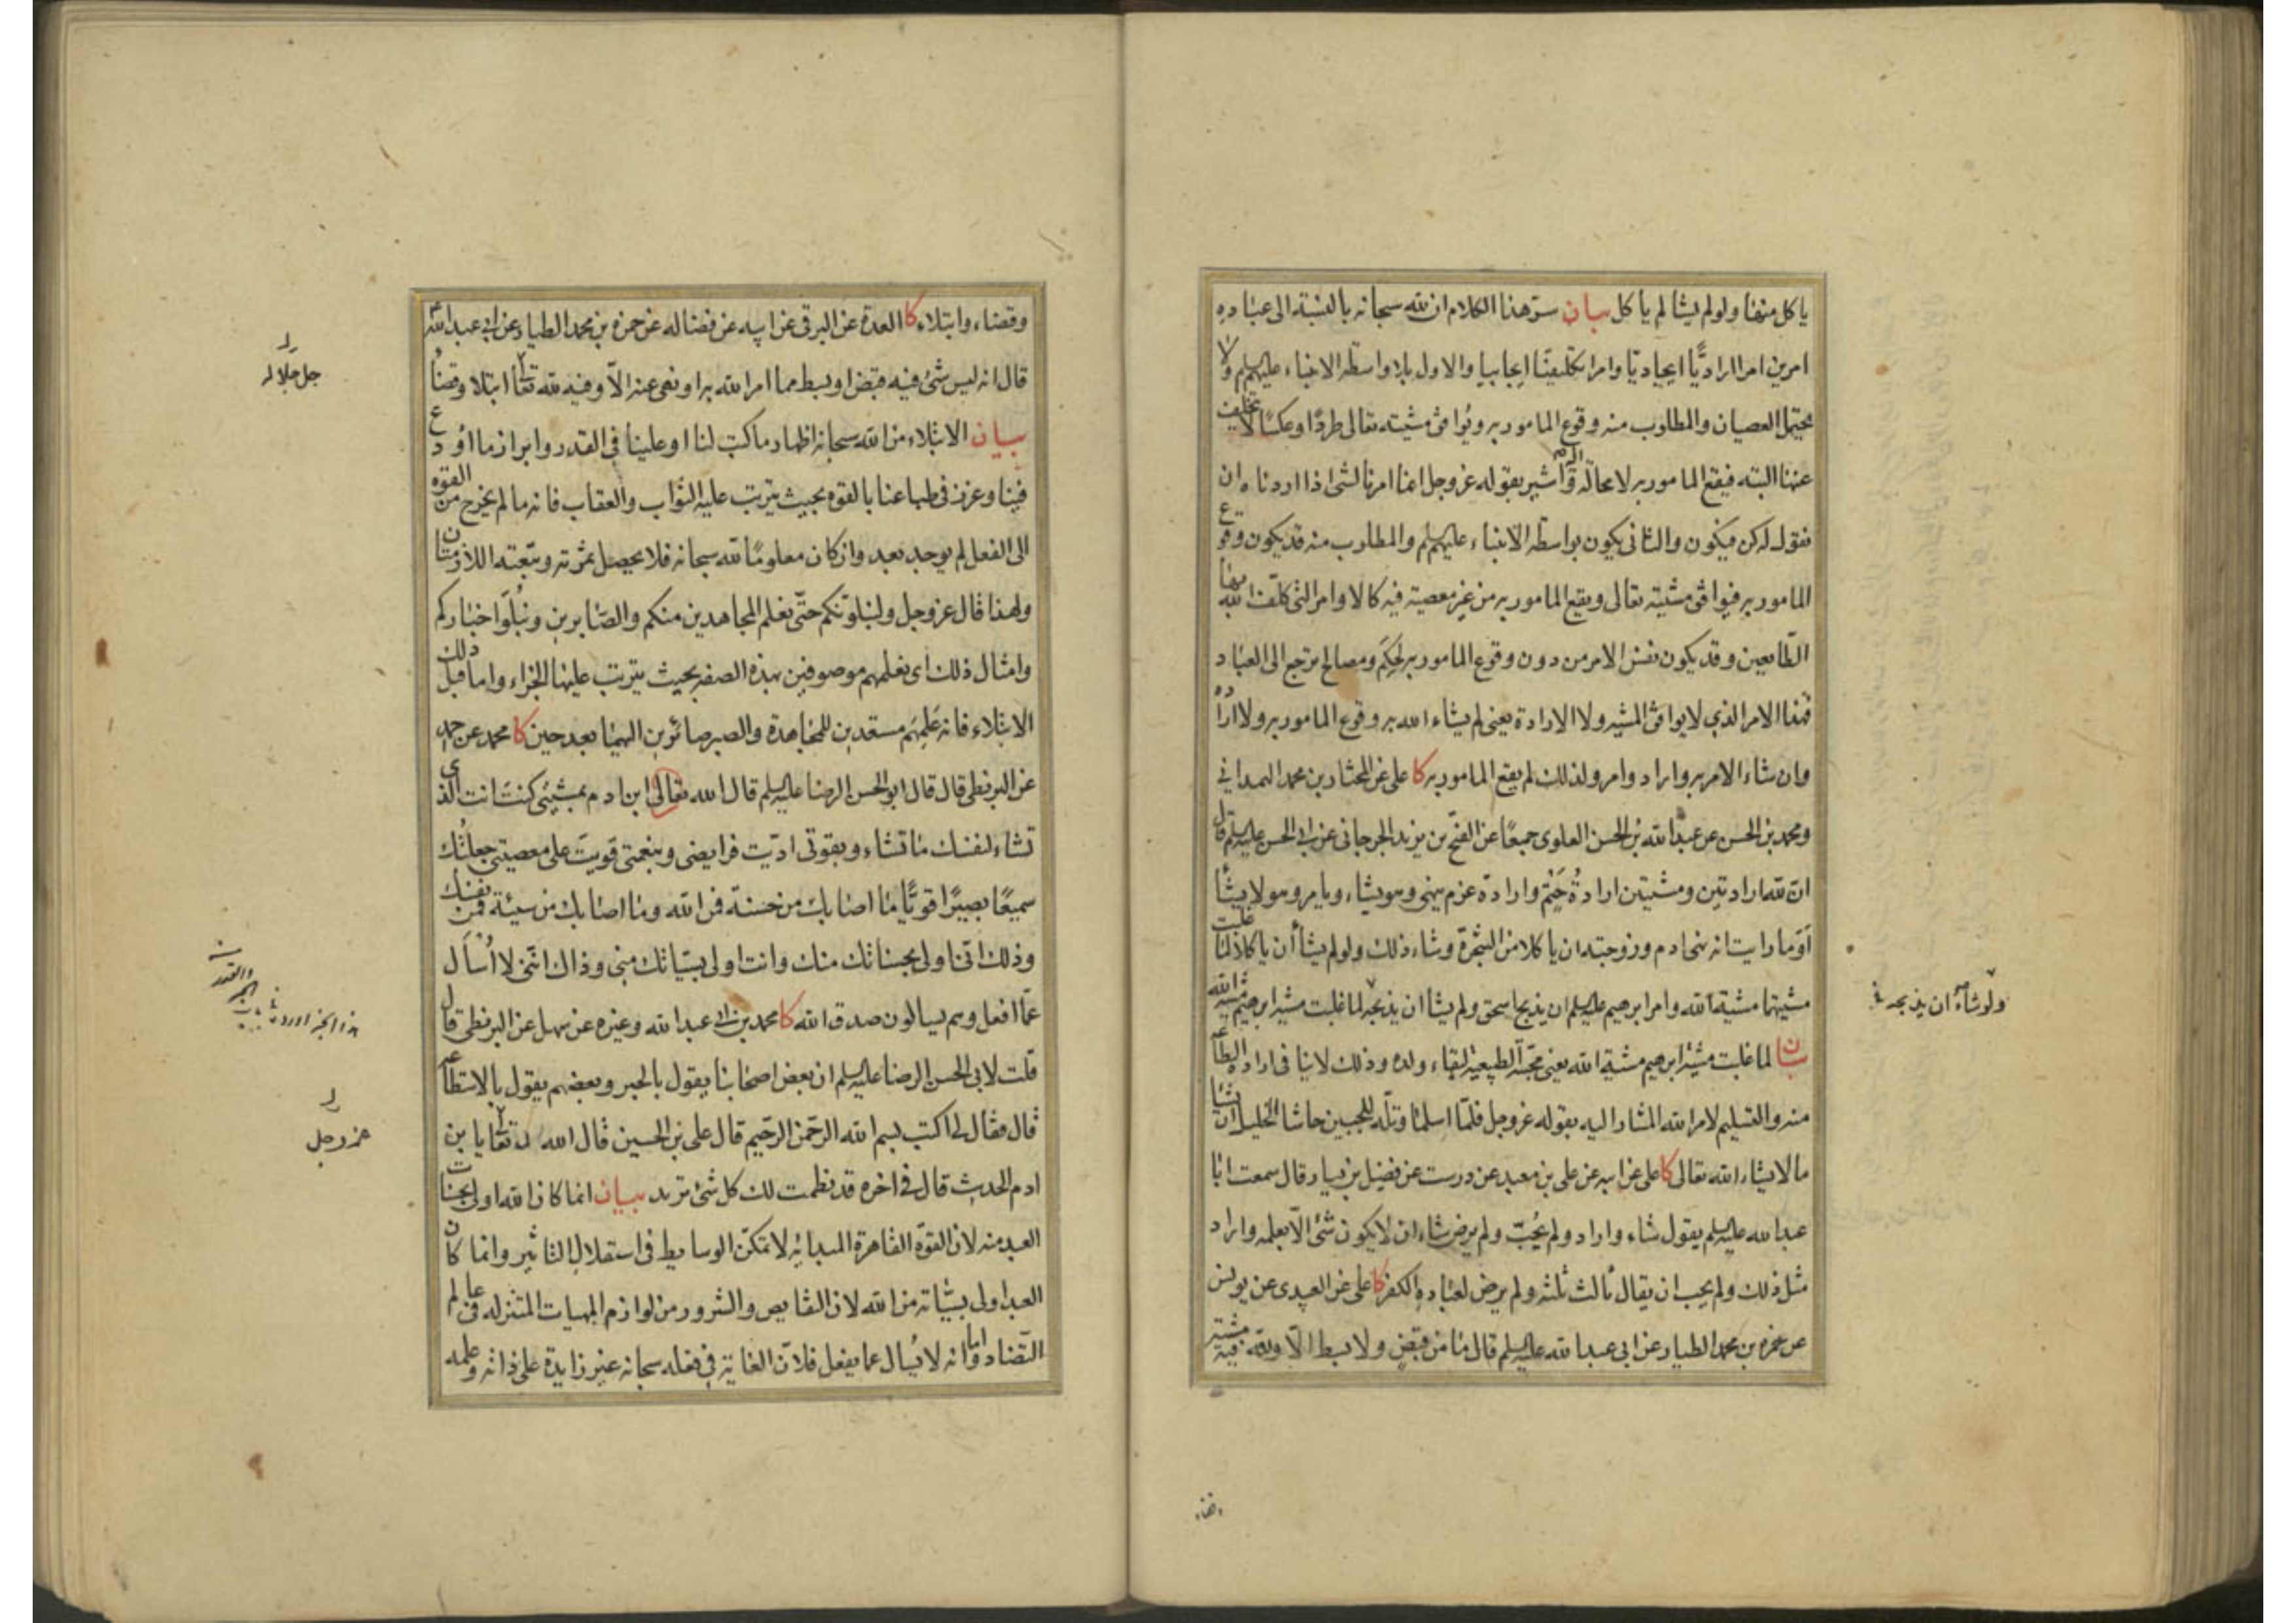 ياكل منها ولو لم يشا لم ياكل بيان سر هذا الكلام ان لله سبحانه بالنسبة الى عباده
امرين امرا اراديًّا ايجاديا وامرا تكليفيّا ايجابيا والاول بلا واسطه الانبياء عليهم السلم ولا
يحتمل العصيان والمطلوب منه وقوع المامور به ويُوافق مشيته تعالى طردًا وعكسًا لا تخلف
عنها البته فيقع المامور به لا محالة واليه اشير بقوله عز وجل انما امرنا لشئ اذا اردناه ان
نقول له كن فيكون والثانى يكون بواسطه الانبياء عليهم السلم والمطلوب منه قد يكون وقوع
المامور به فيوافق مشيته تعالى ويقع المامور به من غير معصية فيه كالاوامر التى كلّف الله بها
الطّايعين وقد يكون نفس الامر من دون وقوع المامور به لحِكَم ومصالح ترجع الى العباد
فهذا الامر الذى لا يوافق المشيه ولا الارادة يعنى لم يشاء الله به وقوع المامور به ولا اراده
وان شاء الامر به واراد وامر ولذلك لم يقع المامور به كا على عن المختار بن محمد الهمدانى
ومحمد بن الحسن عن عبد الله بن الحسن العلوى جميعًا عن الفتح بن يزيد الجرجانى عن ابى الحسن عليه السلم قال
انّ لله ارادتين ومشيتين ارادةُ حَتْم وارادة عزم ينهى وهو يشاء ويامر وهو لا يشا
آوَما رايت انه نهى ادم وزوجته ان ياكلا من الشجرة وشاء ذلك ولو لم يشأ أن ياكلا لما غلبت
مشيتهما مشية الله وامر ابرهيم عليه السلم ان يذبح اسحق ولم يشا ان يذبحه لما غلبت مشية ابرهيم مشية الله
ولو شاء ان يذبحه
بيان لما غلبت مشية ابرهيم مشية الله يعنى محبّته الطبيعية لبقاء ولده وذلك لا ينافى ارادة الطاعة
منه والتسليم لامر الله المشار اليه بقوله عز وجل فلمّا اسلما وتلّه للجبين حاشا الخليل ان يشا
ما لا يشاء الله تعالى كا على عن ابيه عن على بن معبد عن درست عن فضيل بن يسار قال سمعت ابا
عبد الله عليه السلم يقول شاء واراد ولم يُحِبّ ولم يرض شاء ان لا يكون شئ الّا بعلمه واراد
مثل ذلك ولم يحب ان يقال ثالث ثلثه ولم يرض لعباده الكفر كا على عن العبيدى عن يونس
عن حمزه بن محمد الطيار عن ابى عبد الله عليه السلم قال ما من قبض ولا بسط الّا ولله فيه مشية
وقضاء وابتلاء كا العدة عن البرقى عن ابيه عن فضاله عن حمزه بن محمد الطيار عن ابى عبد الله
قال انه ليس شئ فيه قبض او بسط مما امر الله به او نهى عنه الّا وفيه لله تعا ابتلا وقضا
جل جلاله
بيان الابتلاء من الله سبحانه اظهار ما كتب لنا او علينا فى القدر وابراز ما اودع
فينا وغرز فى طباعنا بالقوه بحيث يترتب عليه الثواب والعقاب فانه ما لم يخرج من القوه
الى الفعل لم يوجد بعد وان كان معلومًا لله سبحانه فلا يحصل ثمرته وتبعته اللازمتان
ولهذا قال عز وجل ولنبلونّكم حتّى نعلم المجاهدين منكم والصّابرين ونبلُوَا اخباركم
وامثال ذلك اى نعلمهم موصوفين بهذه الصفه بحيث يترتب عليها الجزاء واما قبل ذلك
الابتلاء فانه عَلِمهُم مستعدين للمجاهدة والصبر صائرين اليهما بعد حين كا محمد عن احمد
عن البزنطى قال قال ابو الحسن الرضا عليه السلم قال الله تعالى ابن ادم بمشيتى كنتَ انت الذى
تشاء لنفسك ما تشاء وبقوتى ادّيت فرايضى وبنعمتى قويتَ على معصيتى جعلتُك
سميعًا بصيرًا قويًّا ما اصابك من حسنة فمن الله وما اصابك من سيئة فمن نفسك
وذلك انّى اولى بحسناتك منك وانت اولى بسيّاتك منى وذاك انّنى لا اُسأل
عمّا افعل وهم يسالون صدق الله كا محمد بن ابى عبد الله وغيره عن سهل عن البزنطى قال
قلت لابى الحسن الرضا عليه السلم ان بعض اصحابنا يقول بالجبر وبعضهم يقول بالاستطاعه
قال فقال لى اكتب بسم الله الرّحمن الرّحيم قال على بن الحسين قال الله تعا يا بن
عز وجل
ادم الحديث قال فى اخره قد نظمت لك كل شئ تريد بيان انما كان الله اولى بحسنات
العبد منه لان القوّة القاهرة المبدائيه لا تمكّن الوسايط فى استقلال التاثير وانما كان
العبد اولى بسيّاته من الله لان النقايص والشرور من لوازم المهيات المتنزله فى عالم
التّضاد واما انه لا يُسال عما يفعل فلانّ الغاية فى فعله سبحانه غير زايدة على ذاته وعلمه